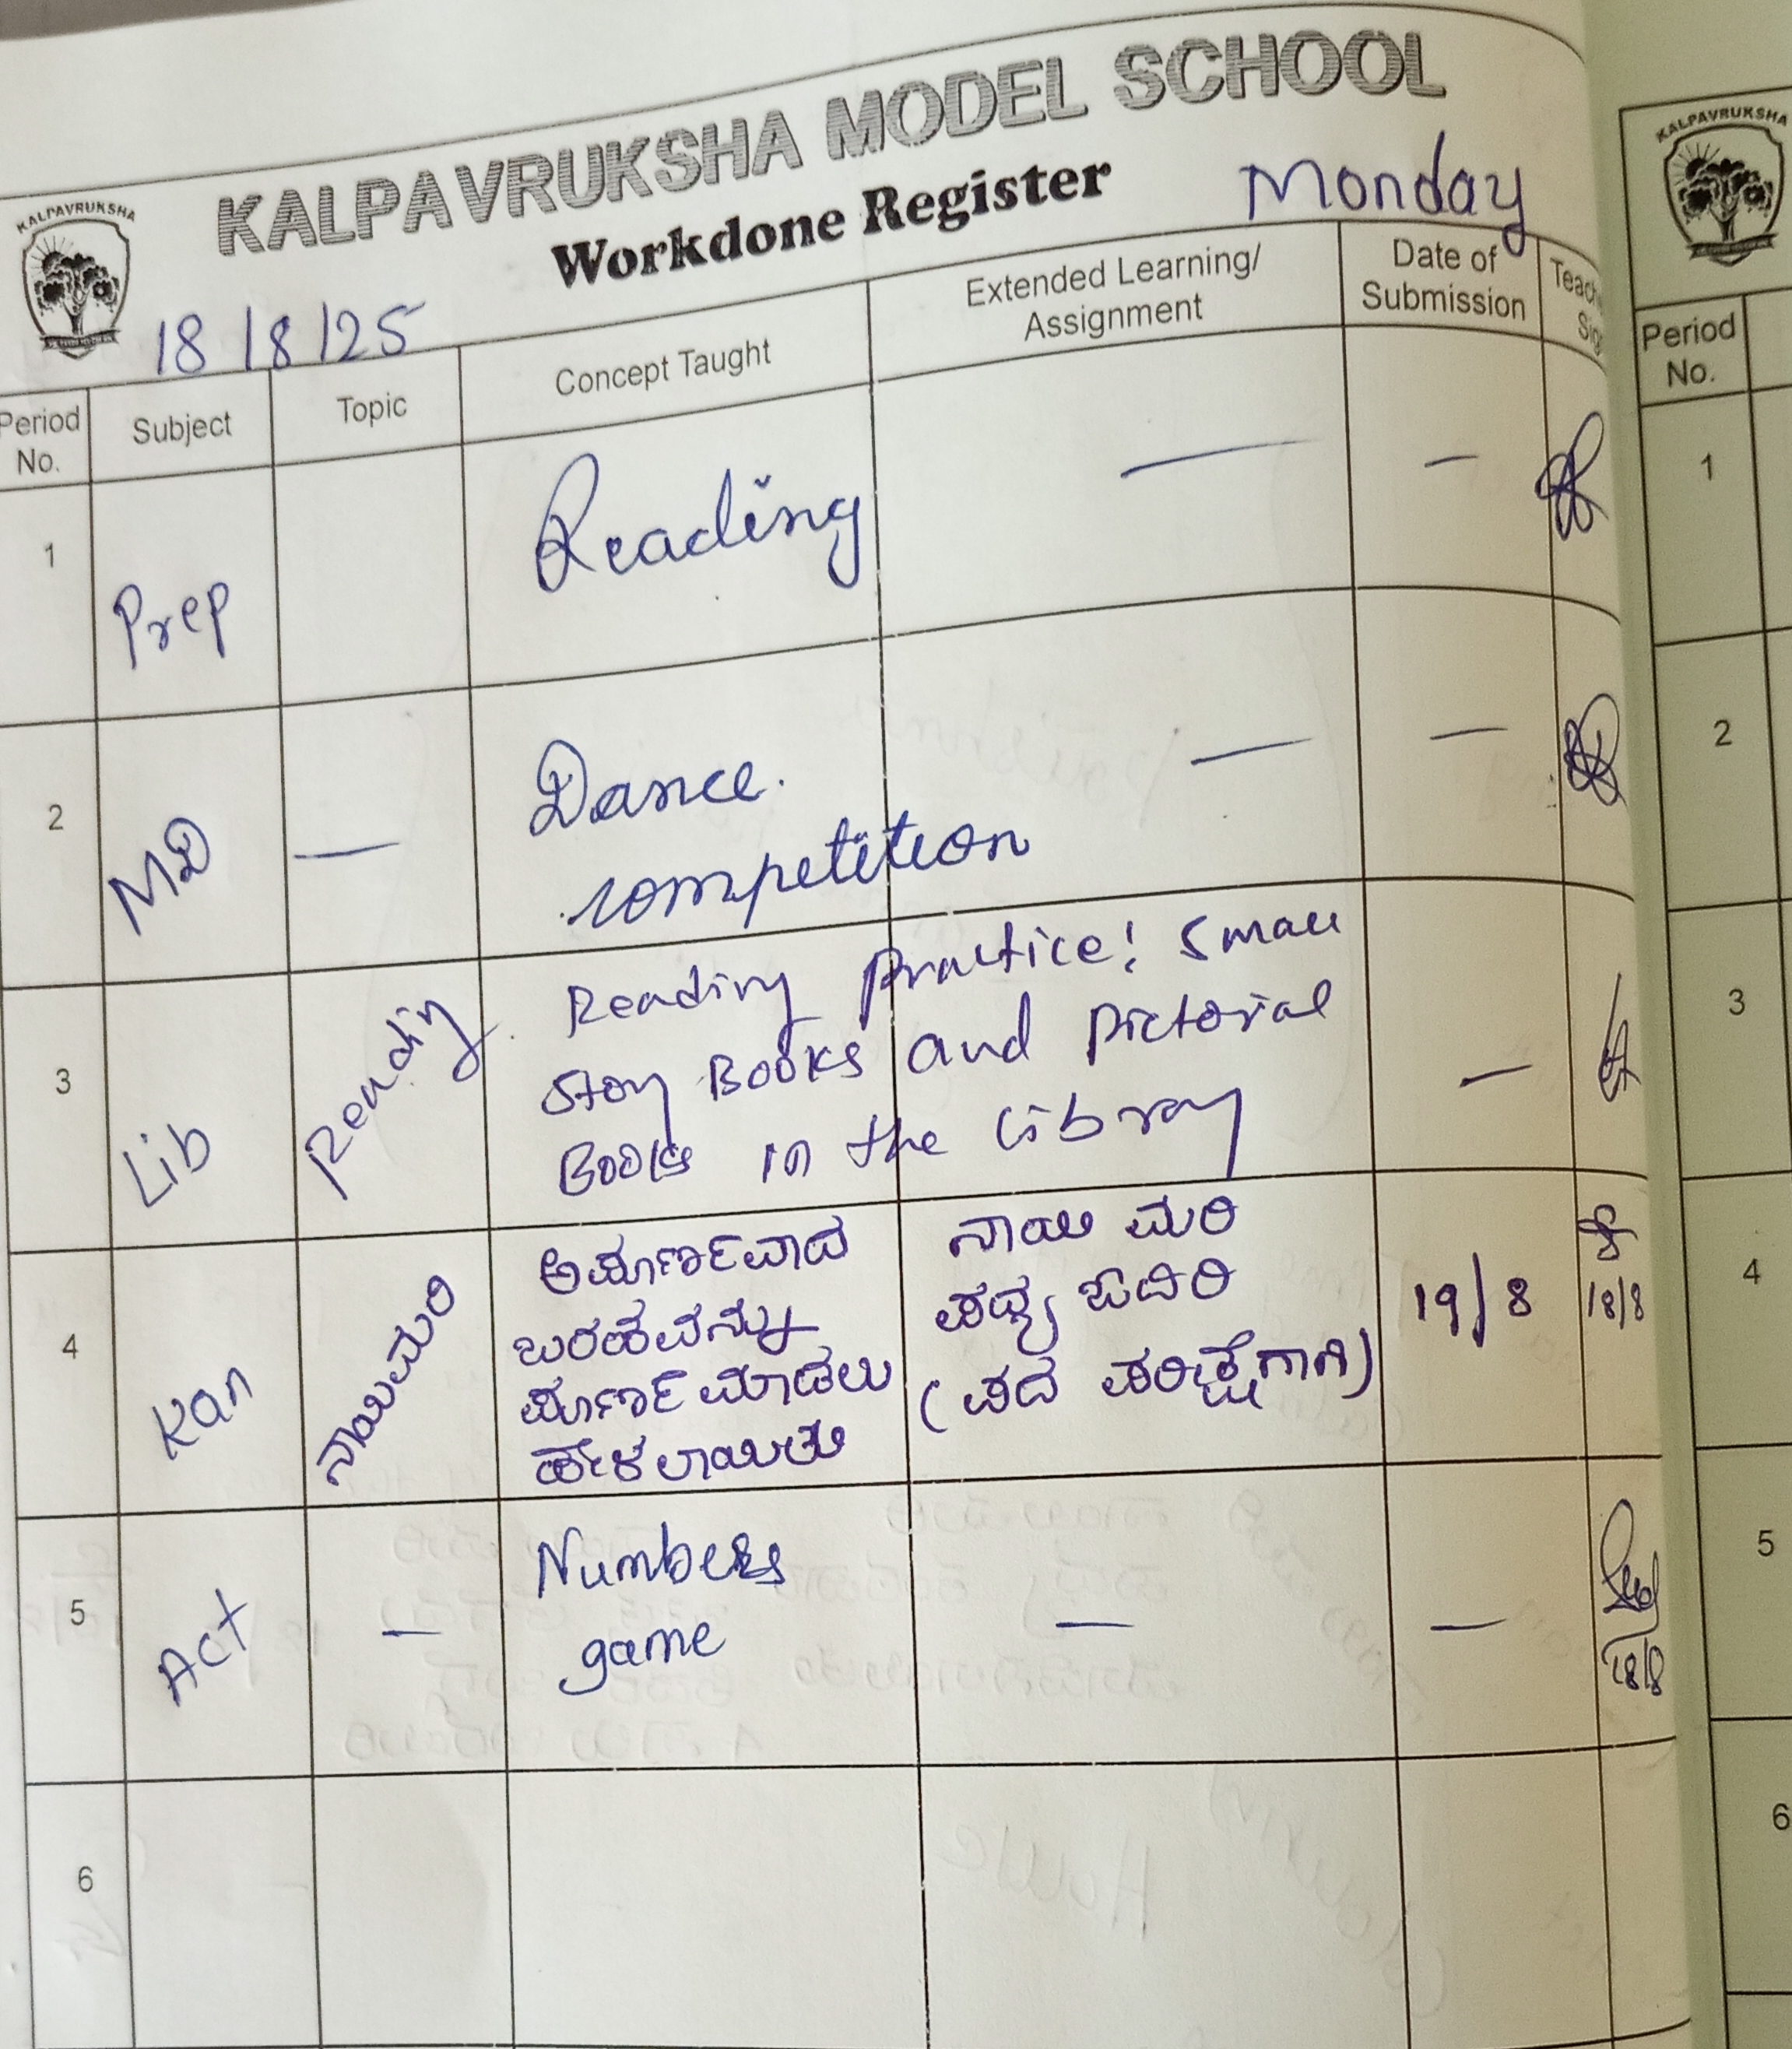 KALPAVRUKSHA MODEL SCHOOL
Workdone Register
Monday
KALPAVRUKSHA
18/8/25
Period No.
Subject
Topic
Concept Taught
Extended Learning/
Assignment
Date of
Submission
1
Prep
Reading
—
—
2
MD
—
Dance.
competition
—
—
3
Lib
Reading
Reading practice! Small
Story Books and Pictorial
Books in the Library
—
4
Kan
ನಾಯಿಮರಿ
ಅಪೂರ್ಣವಾದ
ಬರಹವನ್ನು
ಪೂರ್ಣ ಮಾಡಲು
ಹೇಳಲಾಯಿತು
ನಾಯಿ ಮರಿ
ಪದ್ಯ ಓದಿರಿ
(ಪದ ಪರೀಕ್ಷೆಗಾಗಿ)
19/8
18/8
5
Act
—
Numbers
game
—
—
18/8
6
KALPAVRUKSHA
Period
No.
1
2
3
4
5
6